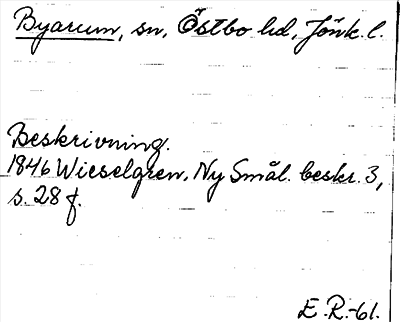 Byarum, sn, Östbo hd, Jönk. l.
Beskrivning.
1846 Wieselgren, Ny Smål. beskr. 3,
s. 28 f.
E.R.-61.